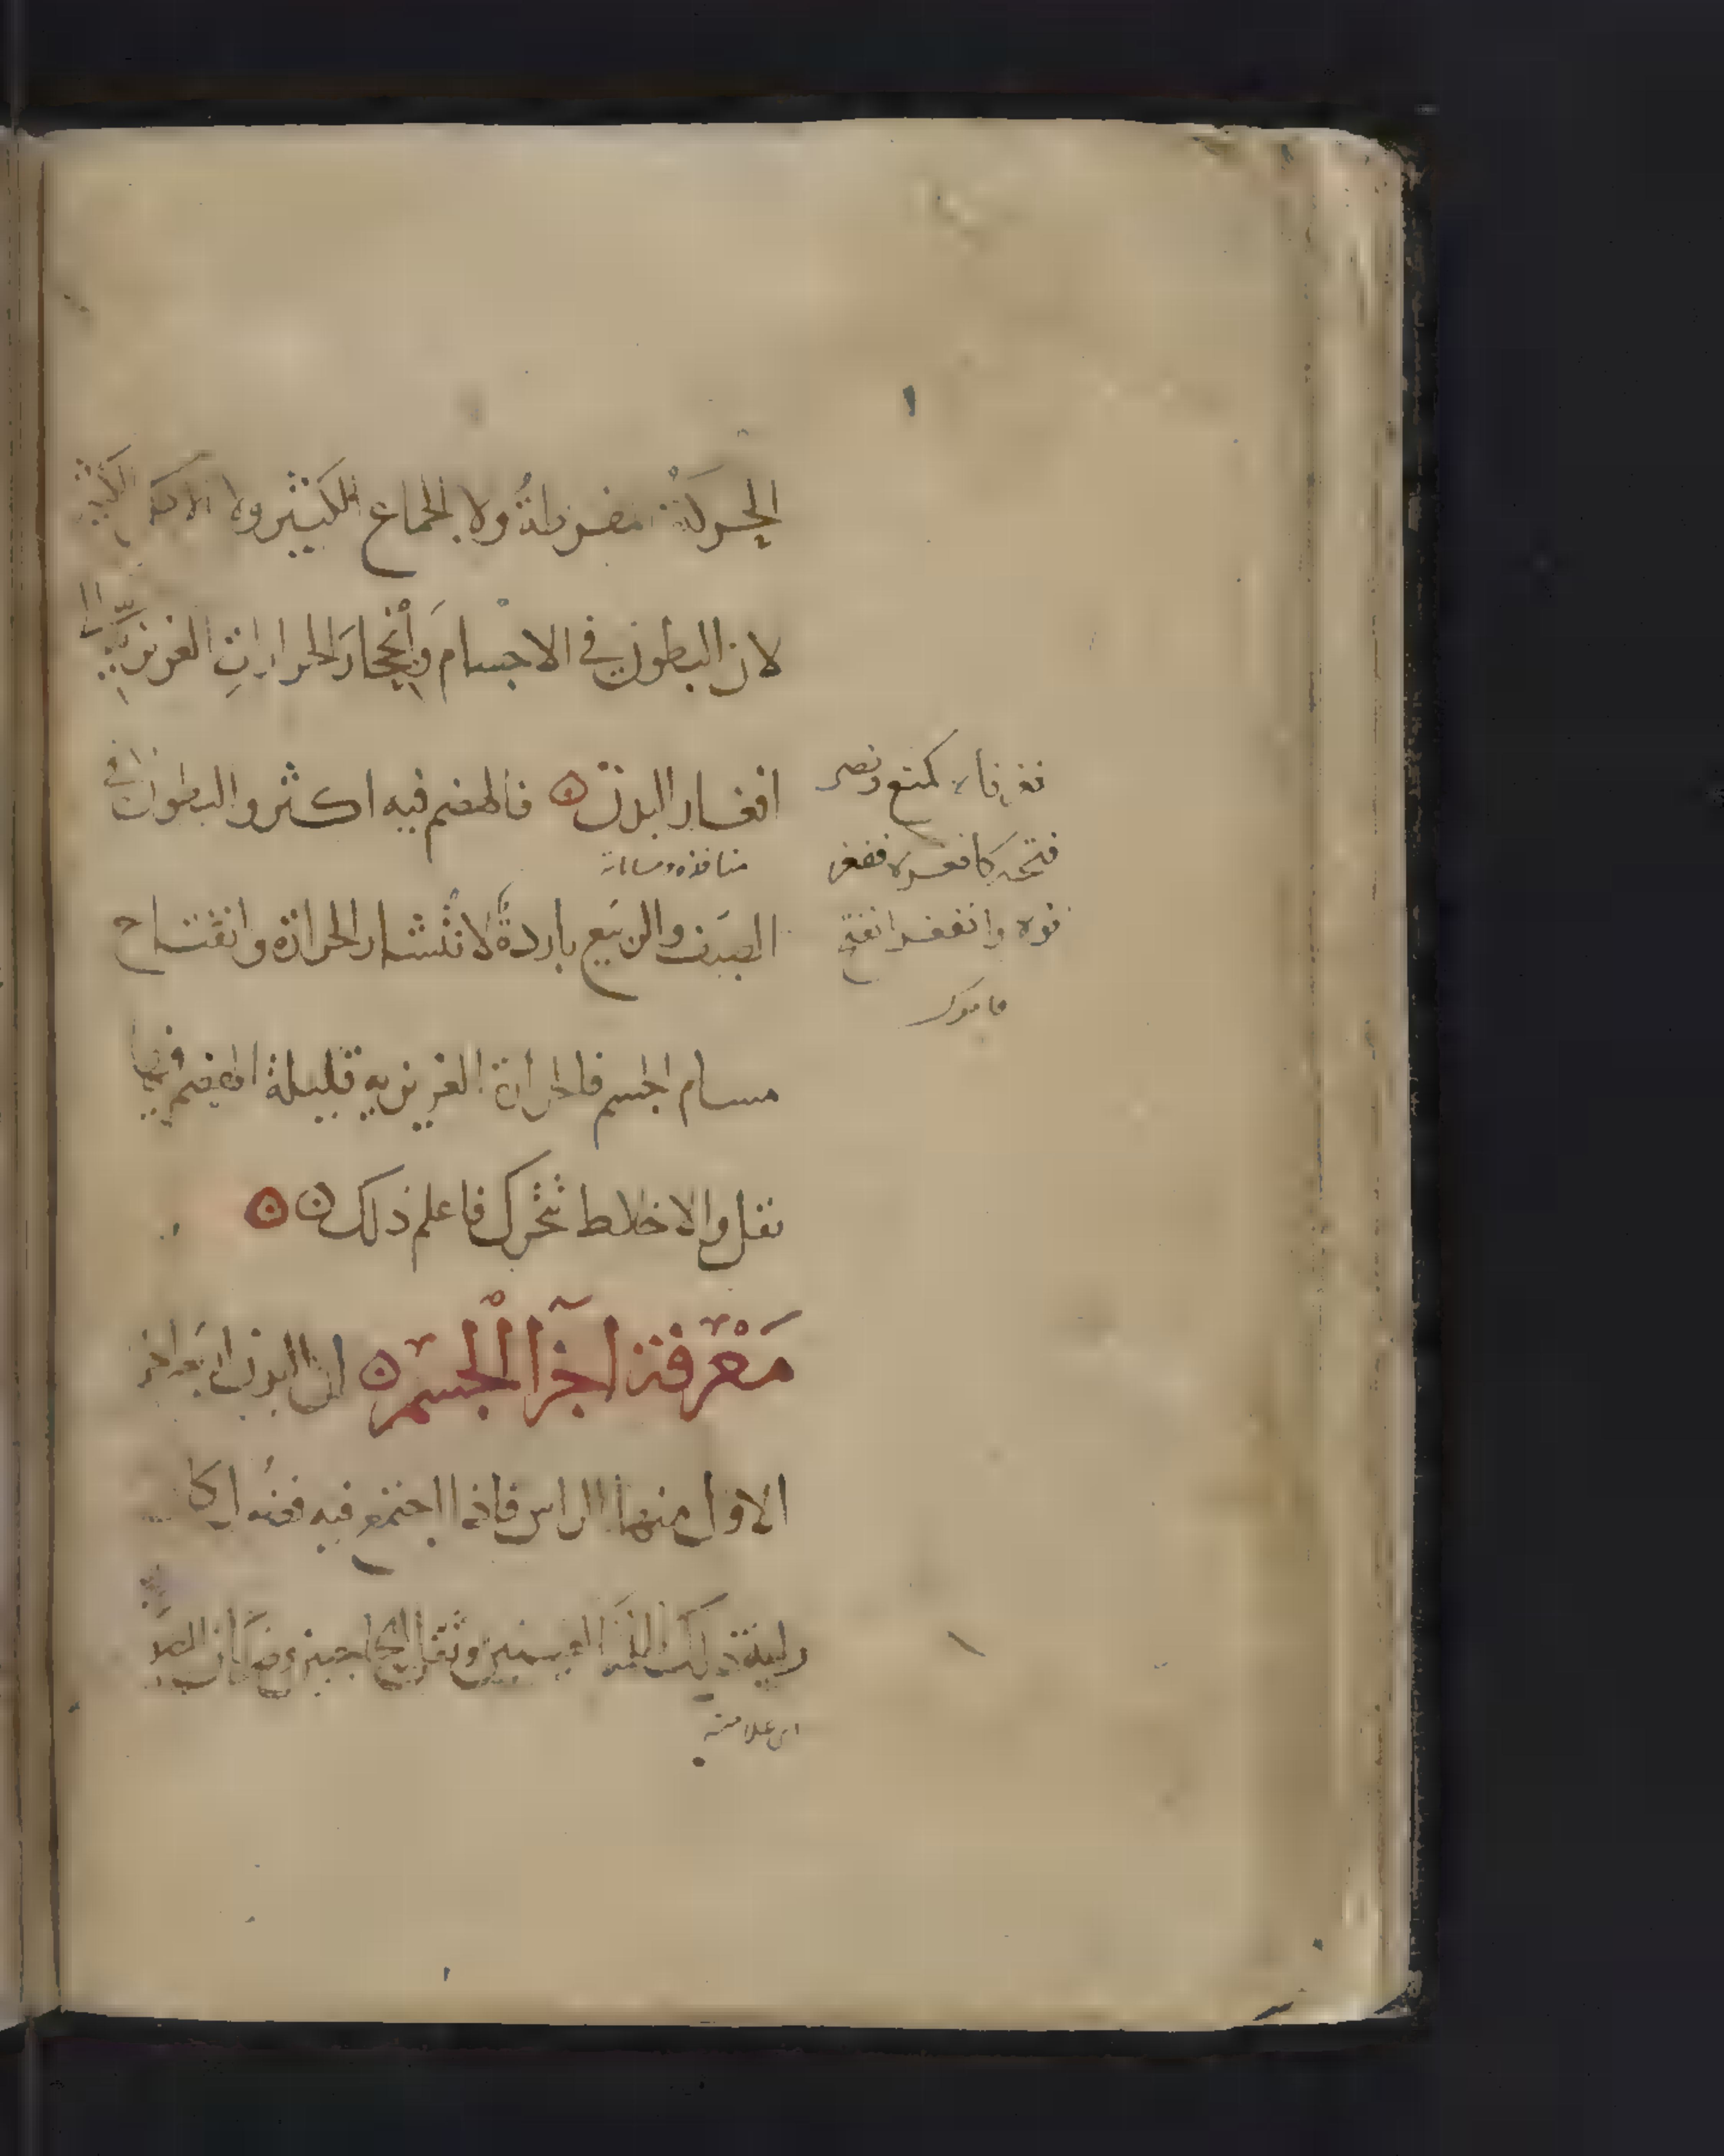 الحركة مفرطة ولا الجماع الكثير ولا الاكل الكثير
لان البطون في الاجسام وانحجار الحرارات الغريزية الى
افغار البدن ۞ فالهضم فيه اكثر والبطون في
منافذه ومساماته
الصيف والربيع باردة لانتشار الحرارة وانفتاح
مسام الجسم فالحرارة الغريزية قليلة الهضم فيها
نقل والاخلاط تتحرك فاعلم ذلك ۞ ۞
مَعْرفة اجزآ الْجسم ۞ ان البدن اربعة اجزا
الاول منها الراس فاذا اجتمع فيه
ذلك العينين وثقل الحاجبين وضربان
اي علامته
فغر فاه كمنع ونصر
فتحه كافغره ففغر
فوه وانفغر انفتح
قاموس